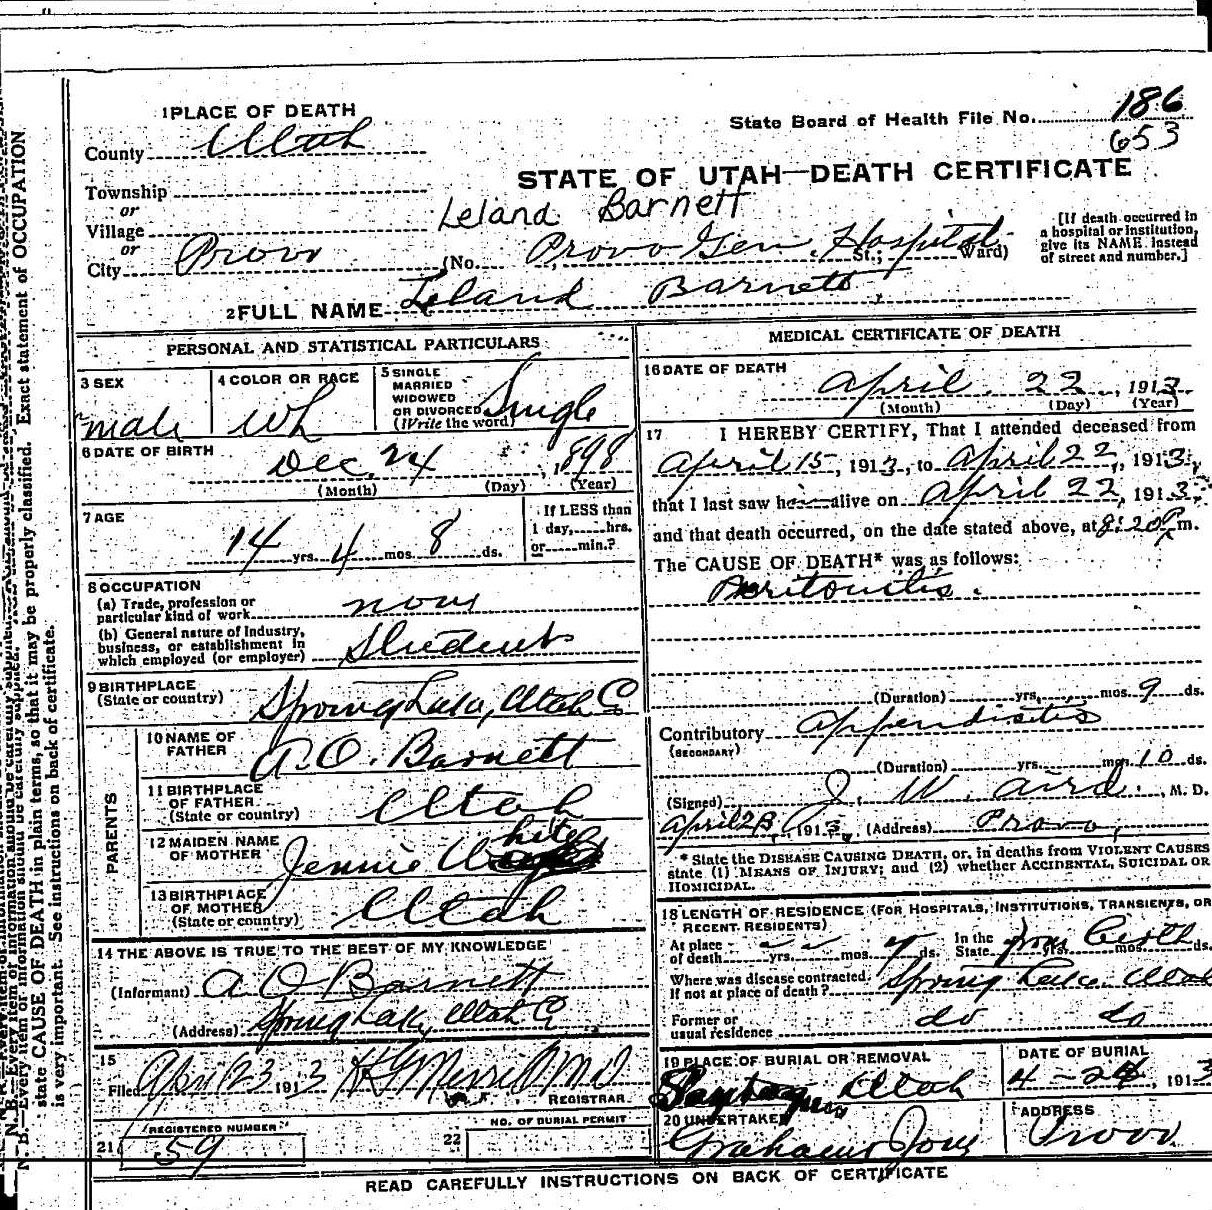 1 PLACE OF DEATH
State Board of Health File No. 186
653
County Utah
STATE OF UTAH—DEATH CERTIFICATE
Township
or
Village
or
City Provo
Leland Barnett
(No. Provo Gen. Hospital St.; Ward)
[If death occurred in
a hospital or institution,
give its NAME instead
of street and number.]
2 FULL NAME Leland Barnett
PERSONAL AND STATISTICAL PARTICULARS
3 SEX
male
4 COLOR OR RACE
Wh
5 SINGLE
MARRIED
WIDOWED
OR DIVORCED
(Write the word)
Single
6 DATE OF BIRTH
Dec. 24, 1898
(Month) (Day) (Year)
7 AGE
14 yrs. 4 mos. 8 ds.
If LESS than
1 day, hrs.
or min.?
8 OCCUPATION
(a) Trade, profession or
particular kind of work
none
(b) General nature of Industry,
business, or establishment in
which employed (or employer)
Student
9 BIRTHPLACE
(State or country)
Spring Lake, Utah Co
PARENTS
10 NAME OF
FATHER
A. O. Barnett
11 BIRTHPLACE
OF FATHER
(State or country)
Utah
12 MAIDEN NAME
OF MOTHER
Jennie White
13 BIRTHPLACE
OF MOTHER
(State or country)
Utah
14 THE ABOVE IS TRUE TO THE BEST OF MY KNOWLEDGE
(Informant) A O Barnett
(Address) Spring Lake, Utah Co
15
Filed April 23 1913
REGISTRAR
REGISTERED NUMBER
21 59
NO. OF BURIAL PERMIT
22
MEDICAL CERTIFICATE OF DEATH
16 DATE OF DEATH
April 22, 1913
(Month) (Day) (Year)
17 I HEREBY CERTIFY, That I attended deceased from
April 15, 1913, to April 22, 1913,
that I last saw him alive on April 22, 1913,
and that death occurred, on the date stated above, at 8:20 P m.
The CAUSE OF DEATH* was as follows:
Peritonitis.
(Duration) yrs. mos. 9 ds.
Contributory appendisitis
(SECONDARY)
(Duration) yrs. mos. 10 ds.
(Signed) J. W. Aird, M. D.
April 23, 1913, (Address) Provo,
* State the DISEASE CAUSING DEATH, or, in deaths from VIOLENT CAUSES
state (1) MEANS OF INJURY; and (2) whether ACCIDENTAL, SUICIDAL OR
HOMICIDAL.
18 LENGTH OF RESIDENCE (FOR HOSPITALS, INSTITUTIONS, TRANSIENTS, OR
RECENT RESIDENTS)
At place
of death yrs. mos. ds.
In the
State from birth yrs. mos. ds.
Where was disease contracted
If not at place of death? Spring Lake Utah
Former or
usual residence do do
19 PLACE OF BURIAL OR REMOVAL
Utah
DATE OF BURIAL
4-24, 1913
20 UNDERTAKER
ADDRESS
Provo
READ CAREFULLY INSTRUCTIONS ON BACK OF CERTIFICATE
state CAUSE OF DEATH in plain terms, so that it may be properly classified. Exact statement of OCCUPATION
is very important. See instructions on back of certificate.